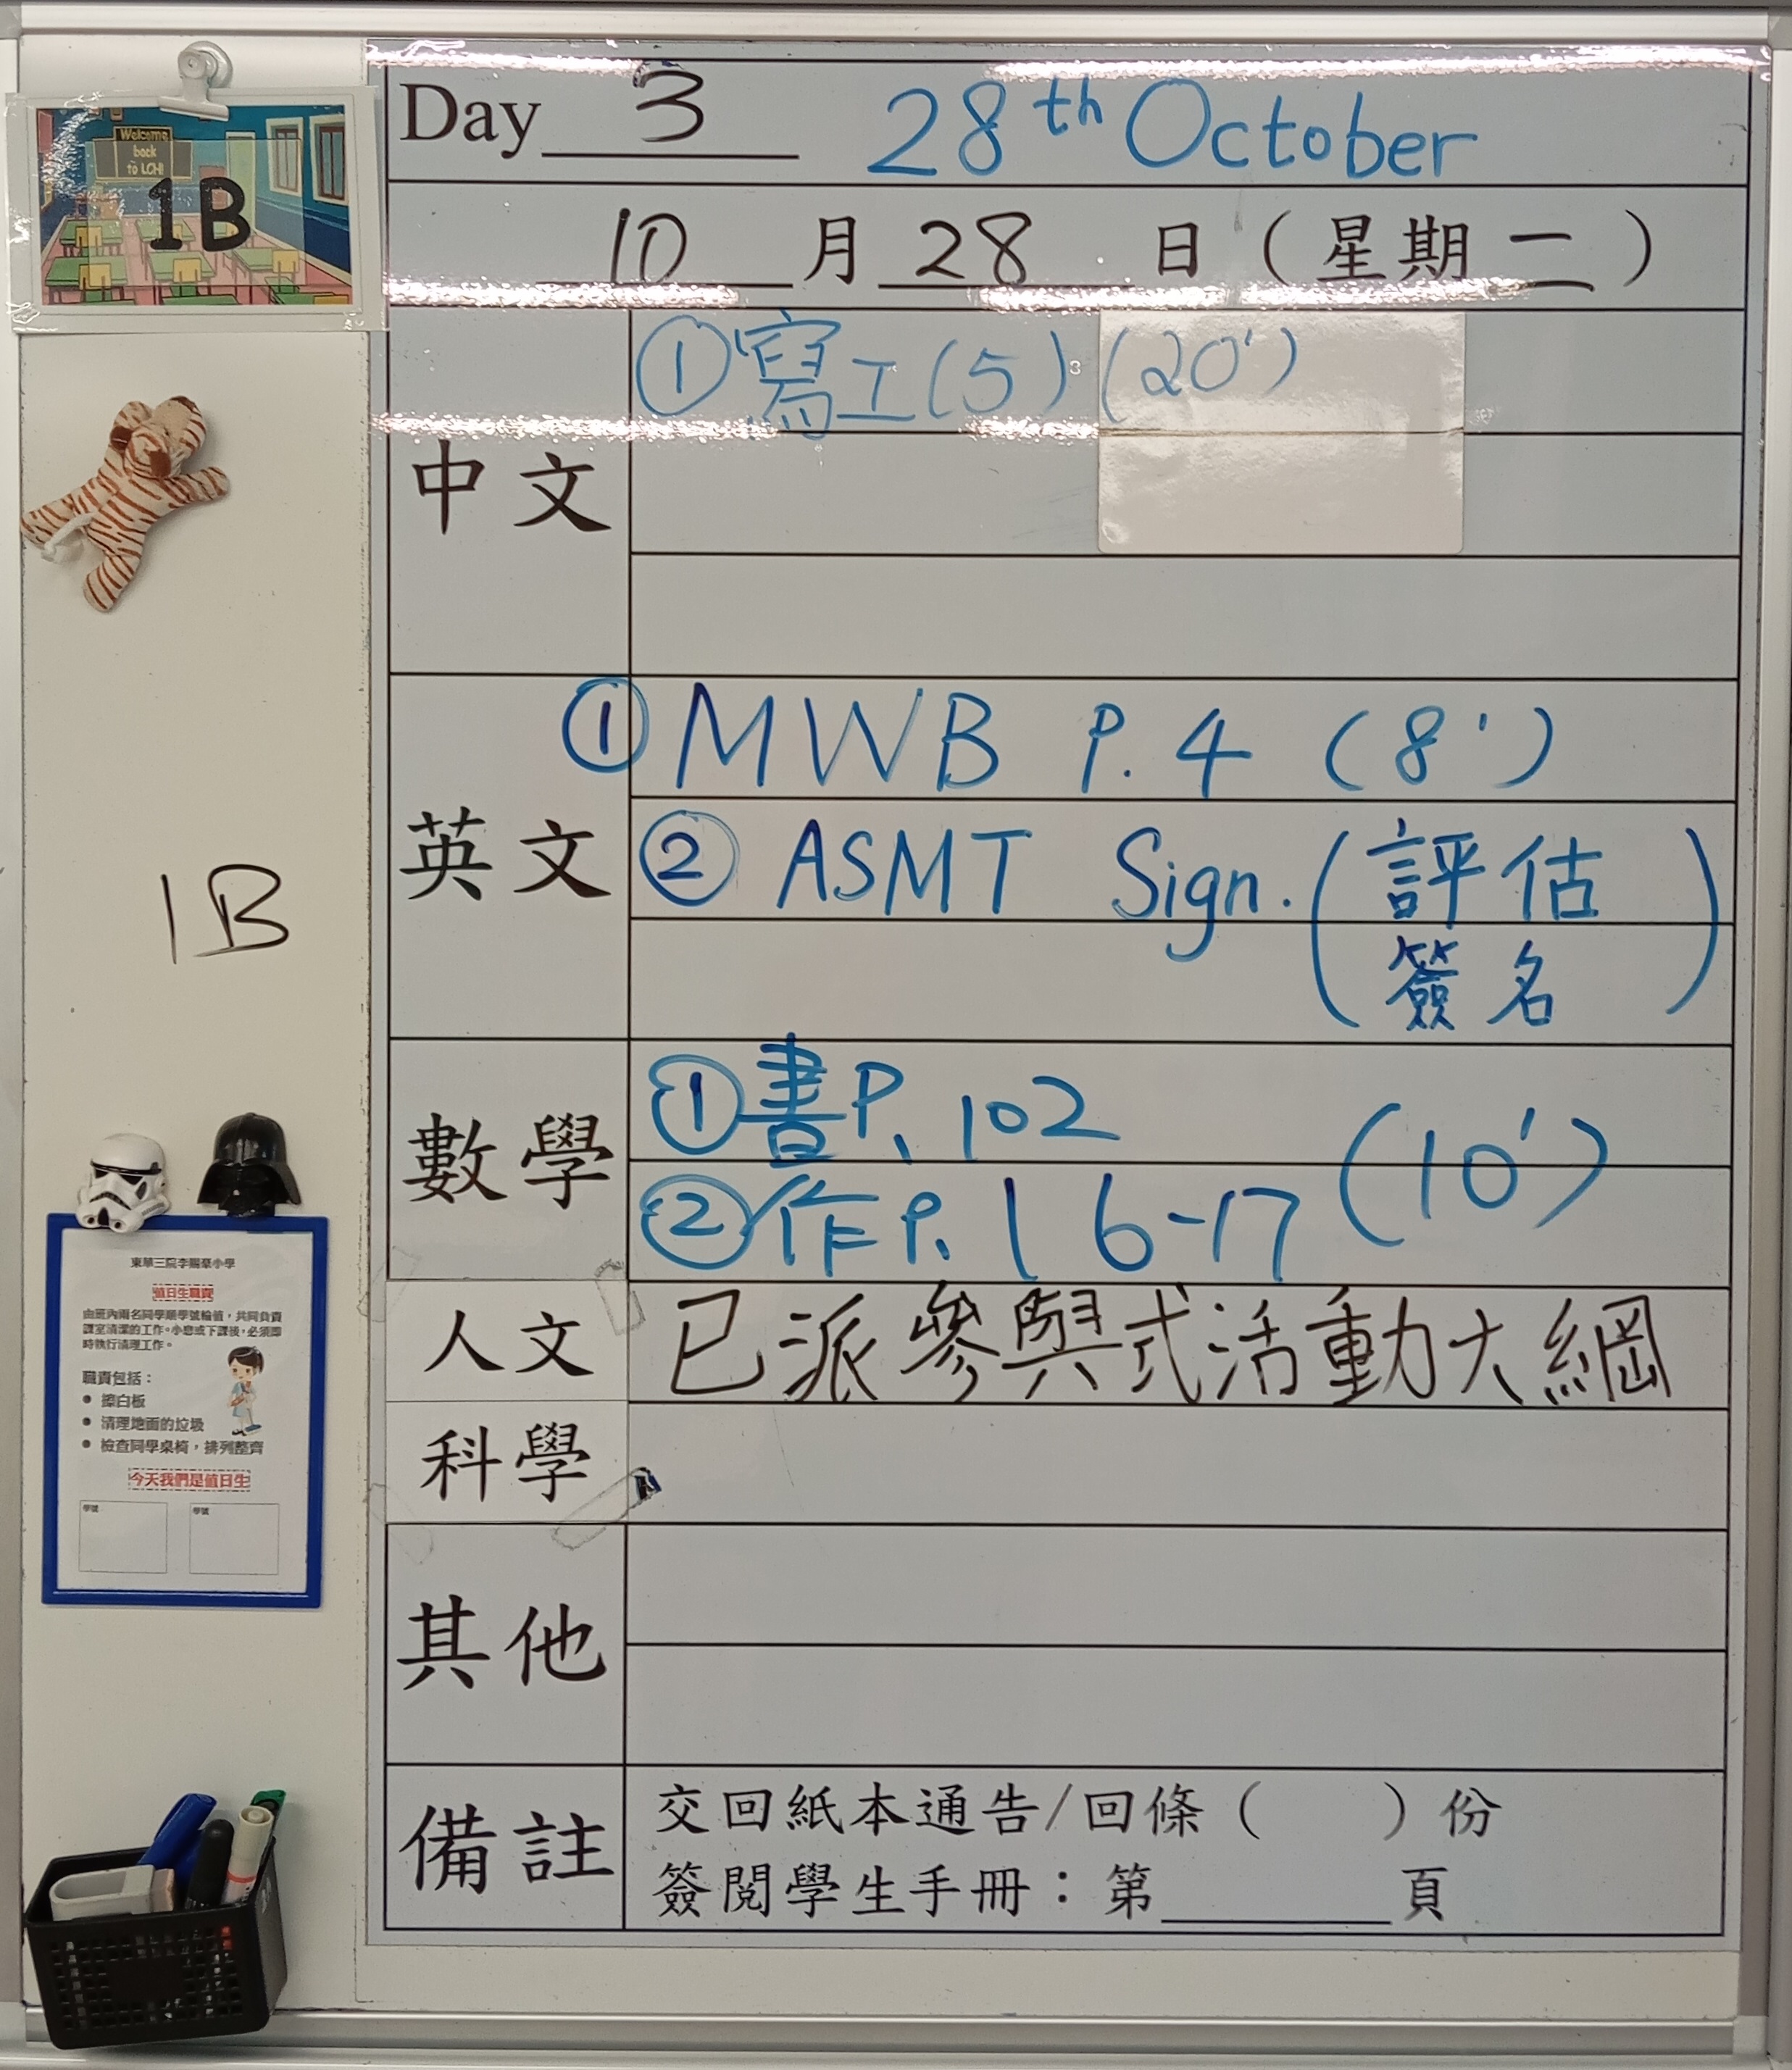 Welcome
back
to LCH!
1B
Day 3 28th October
10 月 28 日 ( 星期 二 )
中文
①寫工(5) (20')
英文
① MWB P. 4 (8')
② ASMT Sign. (評估
簽名)
1B
數學
①書P. 102
②作P. 16-17 (10')
人文
已派參與式活動大綱
科學
其他
備註
交回紙本通告/回條( )份
簽閱學生手冊：第______頁
東華三院李賜豪小學
值日生職責
由班內兩名同學順學號輪值，共同負責
課室清潔的工作。小息或下課後，必須即
時執行清理工作。
職責包括：
● 擦白板
● 清理地面的垃圾
● 檢查同學桌椅，排列整齊
今天我們是值日生
學號
學號